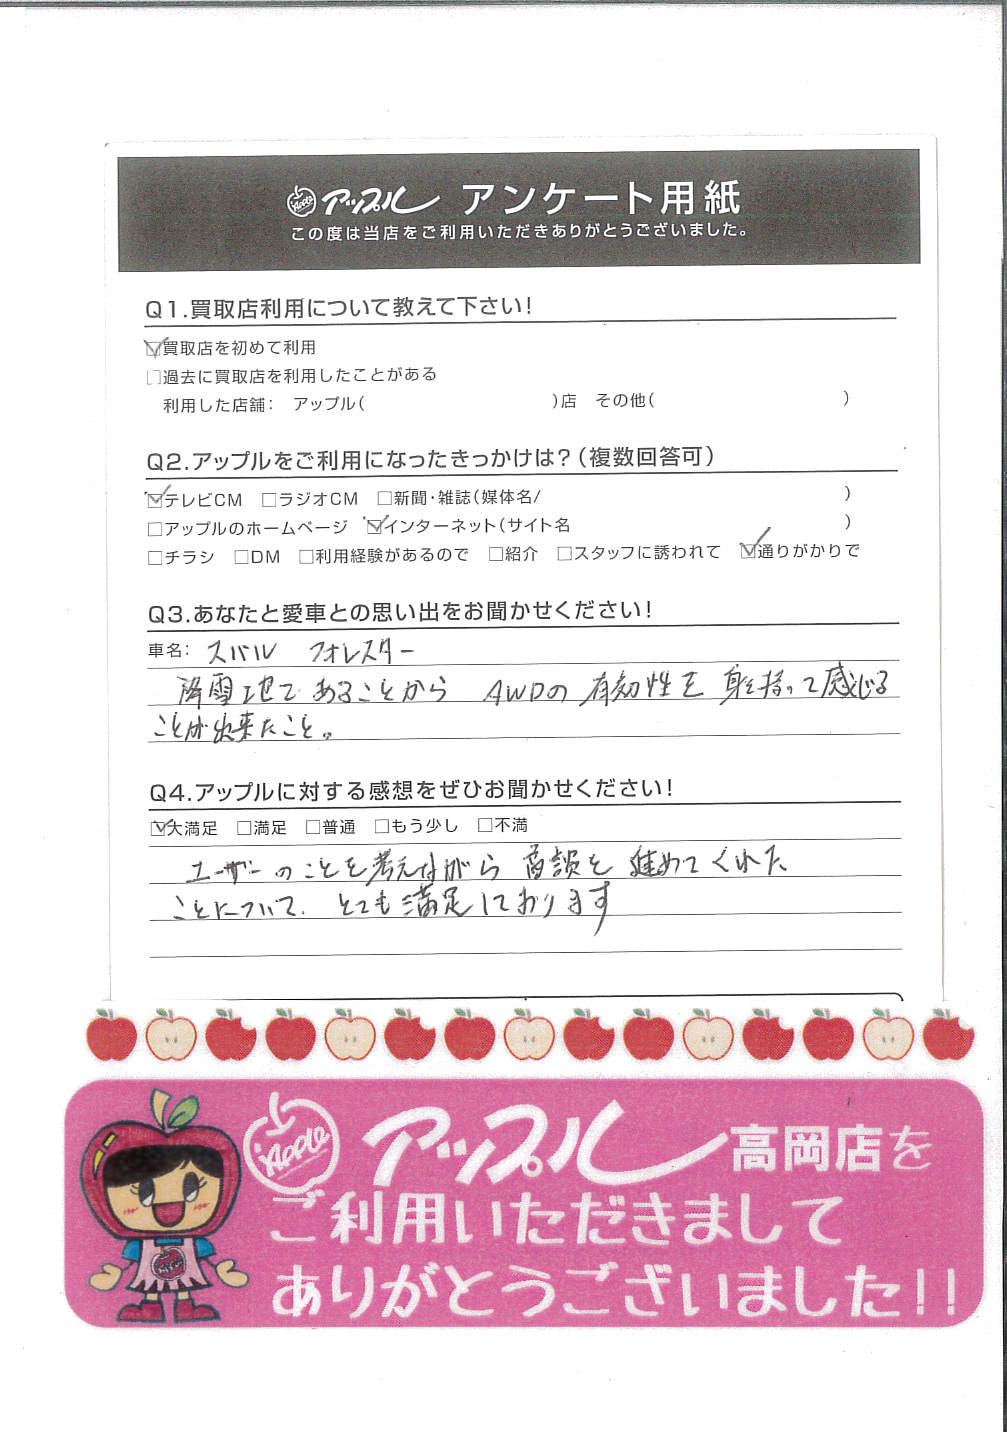 Apple アップル アンケート用紙
この度は当店をご利用いただきありがとうございました。
Q1.買取店利用について教えて下さい!
☑買取店を初めて利用
□過去に買取店を利用したことがある
利用した店舗: アップル( )店 その他( )
Q2.アップルをご利用になったきっかけは?(複数回答可)
☑テレビCM □ラジオCM □新聞・雑誌(媒体名/ )
□アップルのホームページ ☑インターネット(サイト名 )
□チラシ □DM □利用経験があるので □紹介 □スタッフに誘われて ☑通りがかりで
Q3.あなたと愛車との思い出をお聞かせください!
車名: スバル フォレスター
降雪地であることから AWDの有効性を身を持って感じる
ことが出来たこと。
Q4.アップルに対する感想をぜひお聞かせください!
☑大満足 □満足 □普通 □もう少し □不満
ユーザーのことを考えながら商談を進めてくれた
ことについて、とても満足しております
Apple アップル高岡店を
ご利用いただきまして
ありがとうございました!!